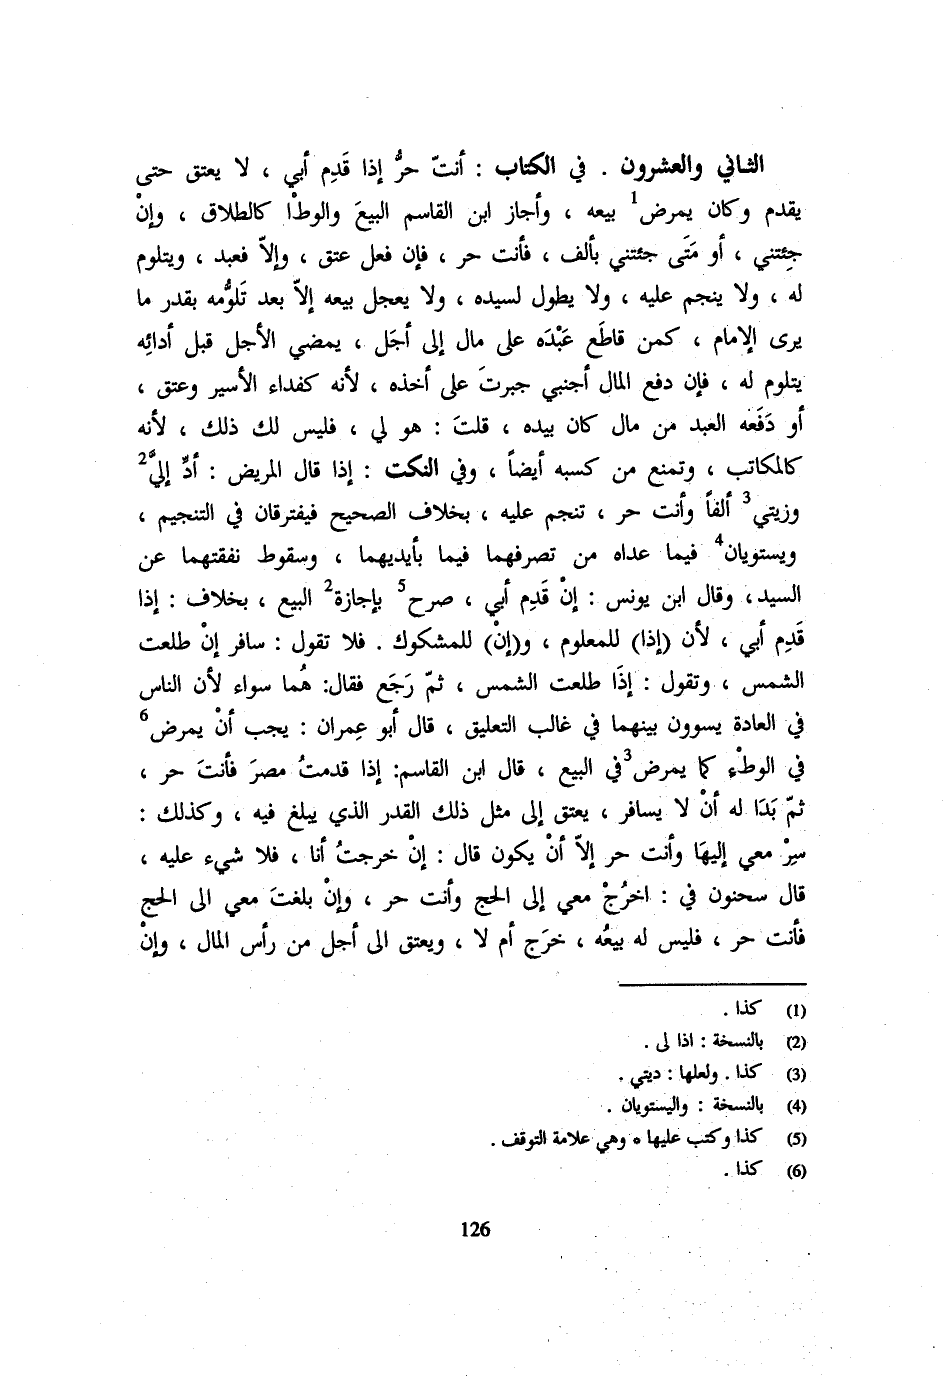 الثاني والعشرون . في الكتاب : أنتَ حرٌّ إذا قَدِم أبي ، لا يعتق حتى
يقدم وكان يمرض1 بيعه ، وأجاز ابن القاسم البيعَ والوطْا كالطلاق ، وإنْ
جِئتني ، أو مَتَى جئتني بألف ، فأنت حر ، فإن فعل عتق ، وإلاّ فعبد ، ويتلوم
له ، ولا ينجم عليه ، ولا يطول لسيده ، ولا يعجل بيعه إلاّ بعد تَلوُّمه بقدر ما
يرى الإمام ، كمن قاطَع عَبْدَه على مال إلى أجَل ، يمضي الأجل قبل أدائِه
يتلوم له ، فإن دفع المال أجنبي جبرتَ على أخذه ، لأنه كفداء الأسير وعتق ،
أو دَفَعه العبد من مال كان بيده ، قلتَ : هو لي ، فليس لك ذلك ، لأنه
كالمكاتب ، وتمنع من كسبه أيضاً ، وفي النكت : إذا قال المريض : أدِّ إليَّ2
وزيتي3 ألفاً وأنت حر ، تنجم عليه ، بخلاف الصحيح فيفترقان في التنجيم ،
ويستويان4 فيما عداه من تصرفهما فيما بأيديهما ، وسقوط نفقتهما عن
السيد، وقال ابن يونس : إنْ قَدِم أبي ، صرح5 بإجازة2 البيع ، بخلاف : إذا
قَدِم أبي ، لأن (إذا) للمعلوم ، و(إنْ) للمشكوك . فلا تقول : سافر إنْ طلعت
الشمس ، وتقول : إذَا طلعت الشمس ، ثمّ رَجَع فقال: هُما سواء لأن الناس
في العادة يسوون بينهما في غالب التعليق ، قال أبو عِمران : يجب أنْ يمرض6
في الوطْء كما يمرض3 في البيع ، قال ابن القاسم: إذا قدمتُ مصرَ فأنتَ حر ،
ثمّ بَدَا له أنْ لا يسافر ، يعتق إلى مثل ذلك القدر الذي يبلغ فيه ، وكذلك :
سِرْ معي إليهَا وأنت حر إلاّ أنْ يكون قال : إنْ خرجتُ أنا ، فلا شيء عليه ،
قال سحنون في : اخرُجْ معي إلى الحج وأنت حر ، وإنْ بلغتَ معي الى الحج
فأنت حر ، فليس له بيعُه ، خرَج أم لا ، ويعتق الى أجل من رأس المال ، وإنْ
(1) كذا .
(2) بالنسخة : اذا لى .
(3) كذا . ولعلها : ديتي .
(4) بالنسخة : واليستويان .
(5) كذا وكتب عليها ه وهي علامة التوقف .
(6) كذا .
126